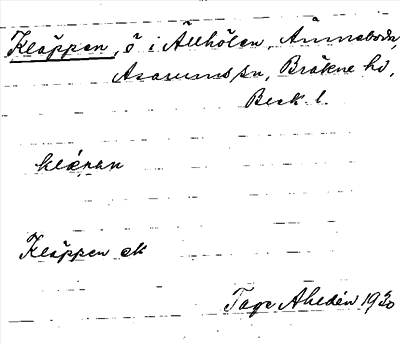 Kläppen, ö i Ällhölen, Ånnaboda,
Asarums sn, Bräkne hd,
Blek. l.
Kläppen ek
Tage Ahldén 1930